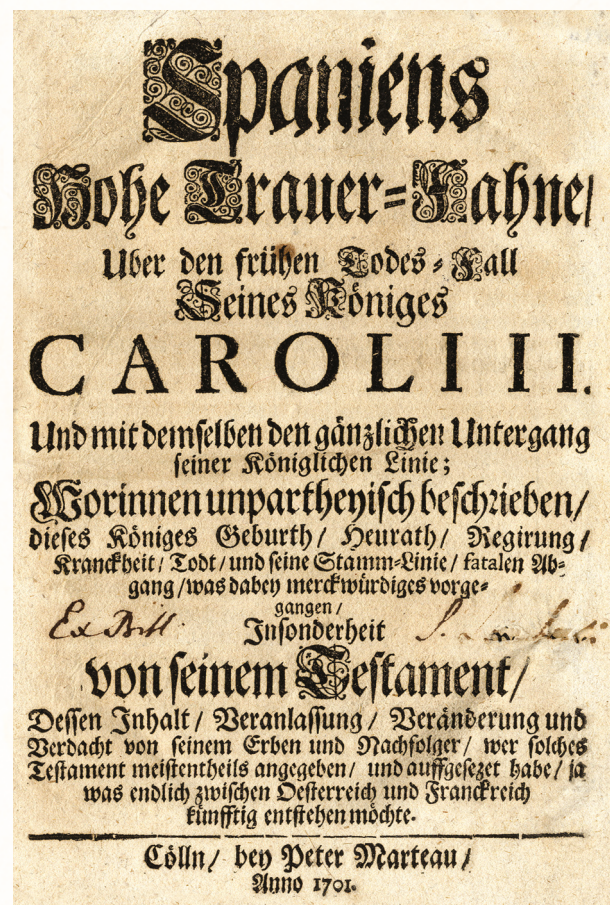 Spaniens
Hohe Trauer-Fahne/
Uber den frühen Todes-Fall
Seines Königes
CAROLI II.
Und mit demselben den gänzlichen Untergang
seiner Königlichen Linie;
Worinnen unpartheyisch beschrieben/
dieses Königes Geburth/ Heurath/ Regirung/
Kranckheit/ Todt/ und seine Stamm-Linie/ fatalen Ab-
gang/ was dabey merckwürdiges vorge-
gangen/
Ex Bibl.
Insonderheit
von seinem Testament/
Dessen Inhalt/ Veranlassung/ Veränderung und
Verdacht von seinem Erben und Nachfolger/ wer solches
Testament meistentheils angegeben/ und auffgesezet habe/ ja
was endlich zwischen Oesterreich und Franckreich
künfftig entstehen möchte.
Cölln/ bey Peter Marteau/
Anno 1701.